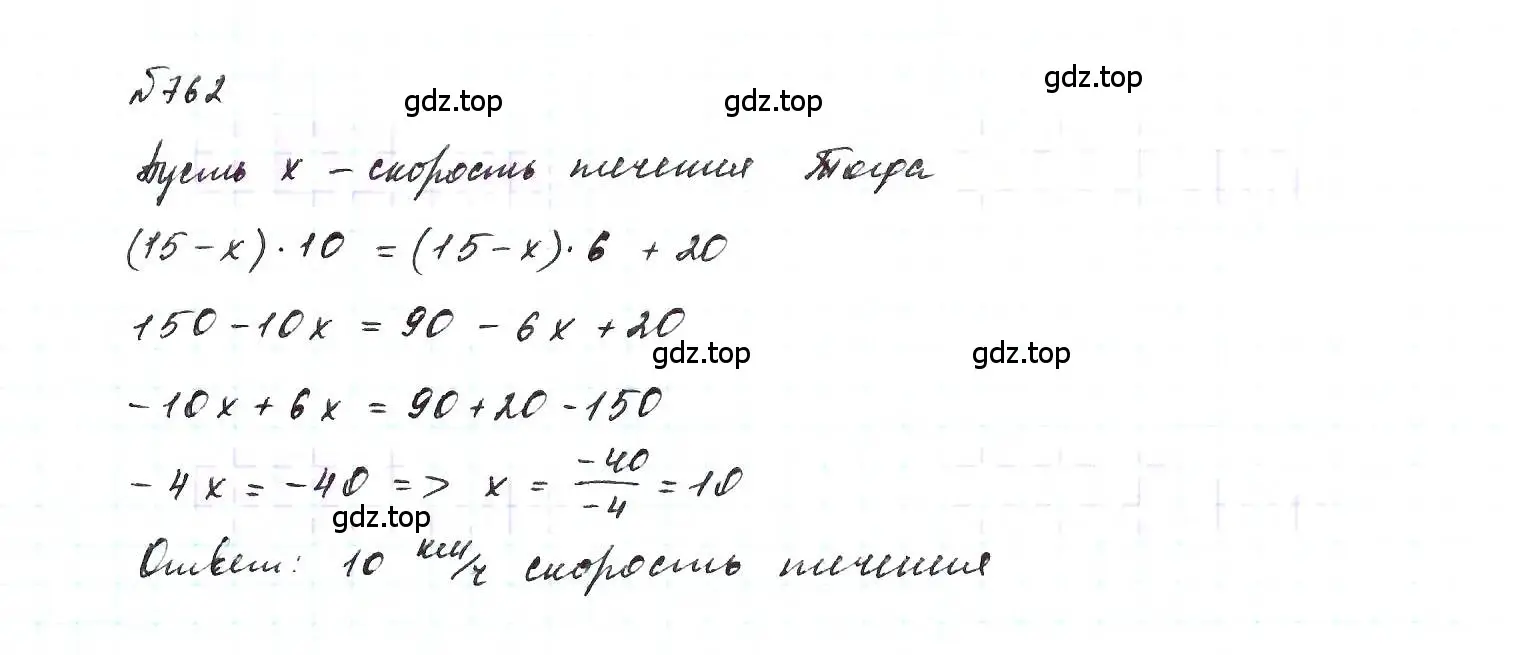 №762
gdz.top gdz.top gdz.top
Пусть x – скорость течения Тогда
(15-x)·10 = (15-x)·6 + 20
150-10x = 90 - 6x + 20
gdz.top gdz.top
-10x + 6x = 90+20-150
-4x = -40 => x = -40/-4 = 10
gdz.top
Ответ: 10 км/ч скорость течения